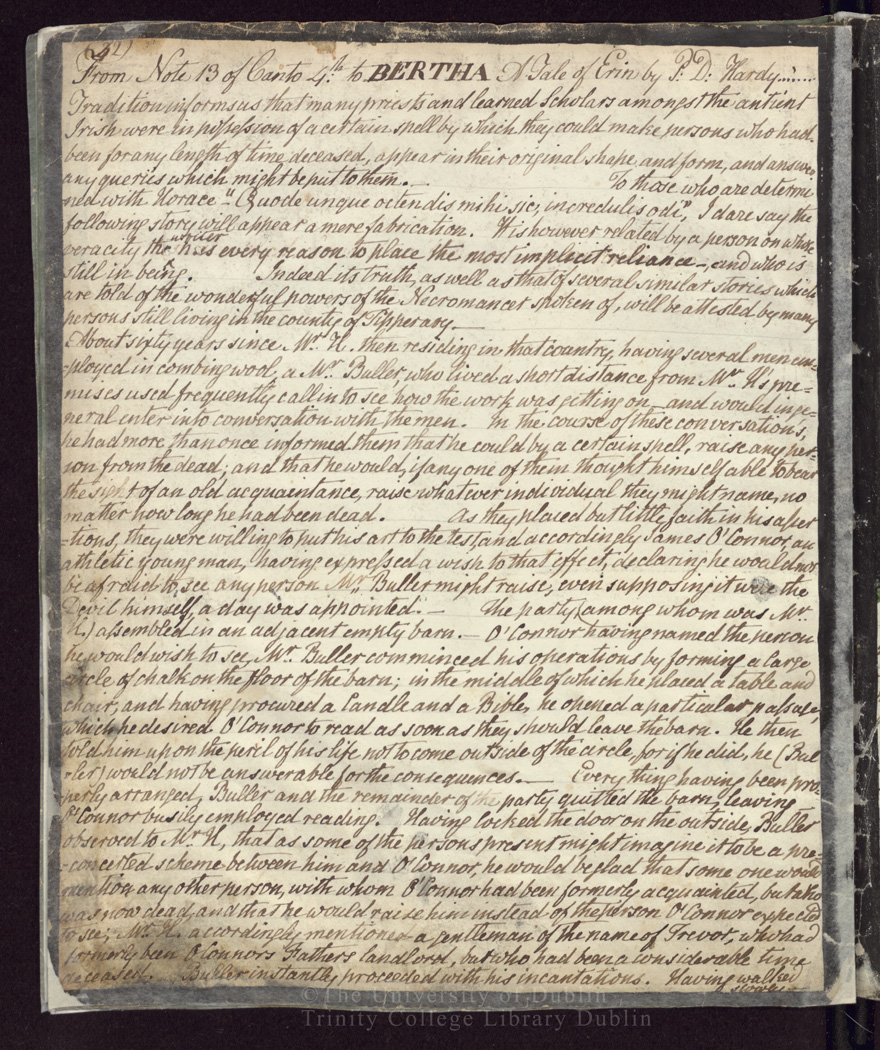 (42)
From Note 13 of Canto 4.th to BERTHA A Tale of Erin by P: D: Hardy.......
Tradition informs us that many priests and learned Scholars amongst the antient
Irish were in possession of a certain spell by which they could make persons who had
been for any length of time deceased, appear in their original shape and form, and answer
any queries which might be put to them.— To those who are determi
ned with Horace "(Quode unque ostendis mihi sic, incredulis odi", I dare say the
following story will appear a mere fabrication. It is however related by a person on whose
veracity the writer has every reason to place the most implicit reliance—, and who is
still in being. Indeed its truth, as well as that of several similar stories which
are told of the wonderful powers of the Necromancer spoken of, will be attested by many
persons still living in the county of Tipperary.—
About sixty years since Mr. H. then residing in that country, having several men em-
-ployed in combing wool, a Mr. Buller, who lived a short distance from Mr. H's pre=
mises used frequently call in to see how the work was getting on—and would in ge=
neral enter into conversation with the men. In the course of these conversations,
he had more than once informed them that he could by a certain spell, raise any per=
son from the dead; and that he would, if any one of them thought himself able to bear
the sight of an old acquaintance, raise whatever individual they might name, no
matter how long he had been dead. As they placed but little faith in his asser
=tions, they were willing to put his art to the test, and accordingly James O'Connor, an
athletic young man, having expressed a wish to that effect, declaring he would not
be afraid to see any person Mr. Buller might raise, even supposing it were the
Devil himself, a day was appointed.— The party (among whom was Mr.
H.) assembled in an adjacent empty barn.— O'Connor having named the person
he would wish to see, Mr. Buller comminced his operations by forming a large
circle of chalk on the floor of the barn; in the middle of which he placed a table and
chair, and having procured a Candle and a Bible, he opened a particular passage,
which he desired O'Connor to read as soon as they should leave the barn. He then
told him upon the peril of his life not to come outside of the circle, for if he did, he (Bul
-ler) would not be answerable for the consequences.— Every thing having been pro-
-perly arranged, Buller and the remainder of the party quitted the barn, leaving
O'Connor busily employed reading. Having locked the door on the outside, Buller
observed to Mr. H, that as some of the persons present might imagine it to be a pre=
-concerted scheme between him and O'Connor, he would be glad that some one would
mention any other person, with whom O'Connor had been formerly acquainted, but who
was now dead, and that he would raise him instead of the person O'Connor expected
to see; Mr. H. accordingly mentioned a gentleman of the name of Trevor, who had
formerly been O'Connors Fathers landlord, but who had been a considerable time
deceased. Buller instantly proceeded with his incantations. Having walked
slowly
©The University of Dublin
Trinity College Library Dublin